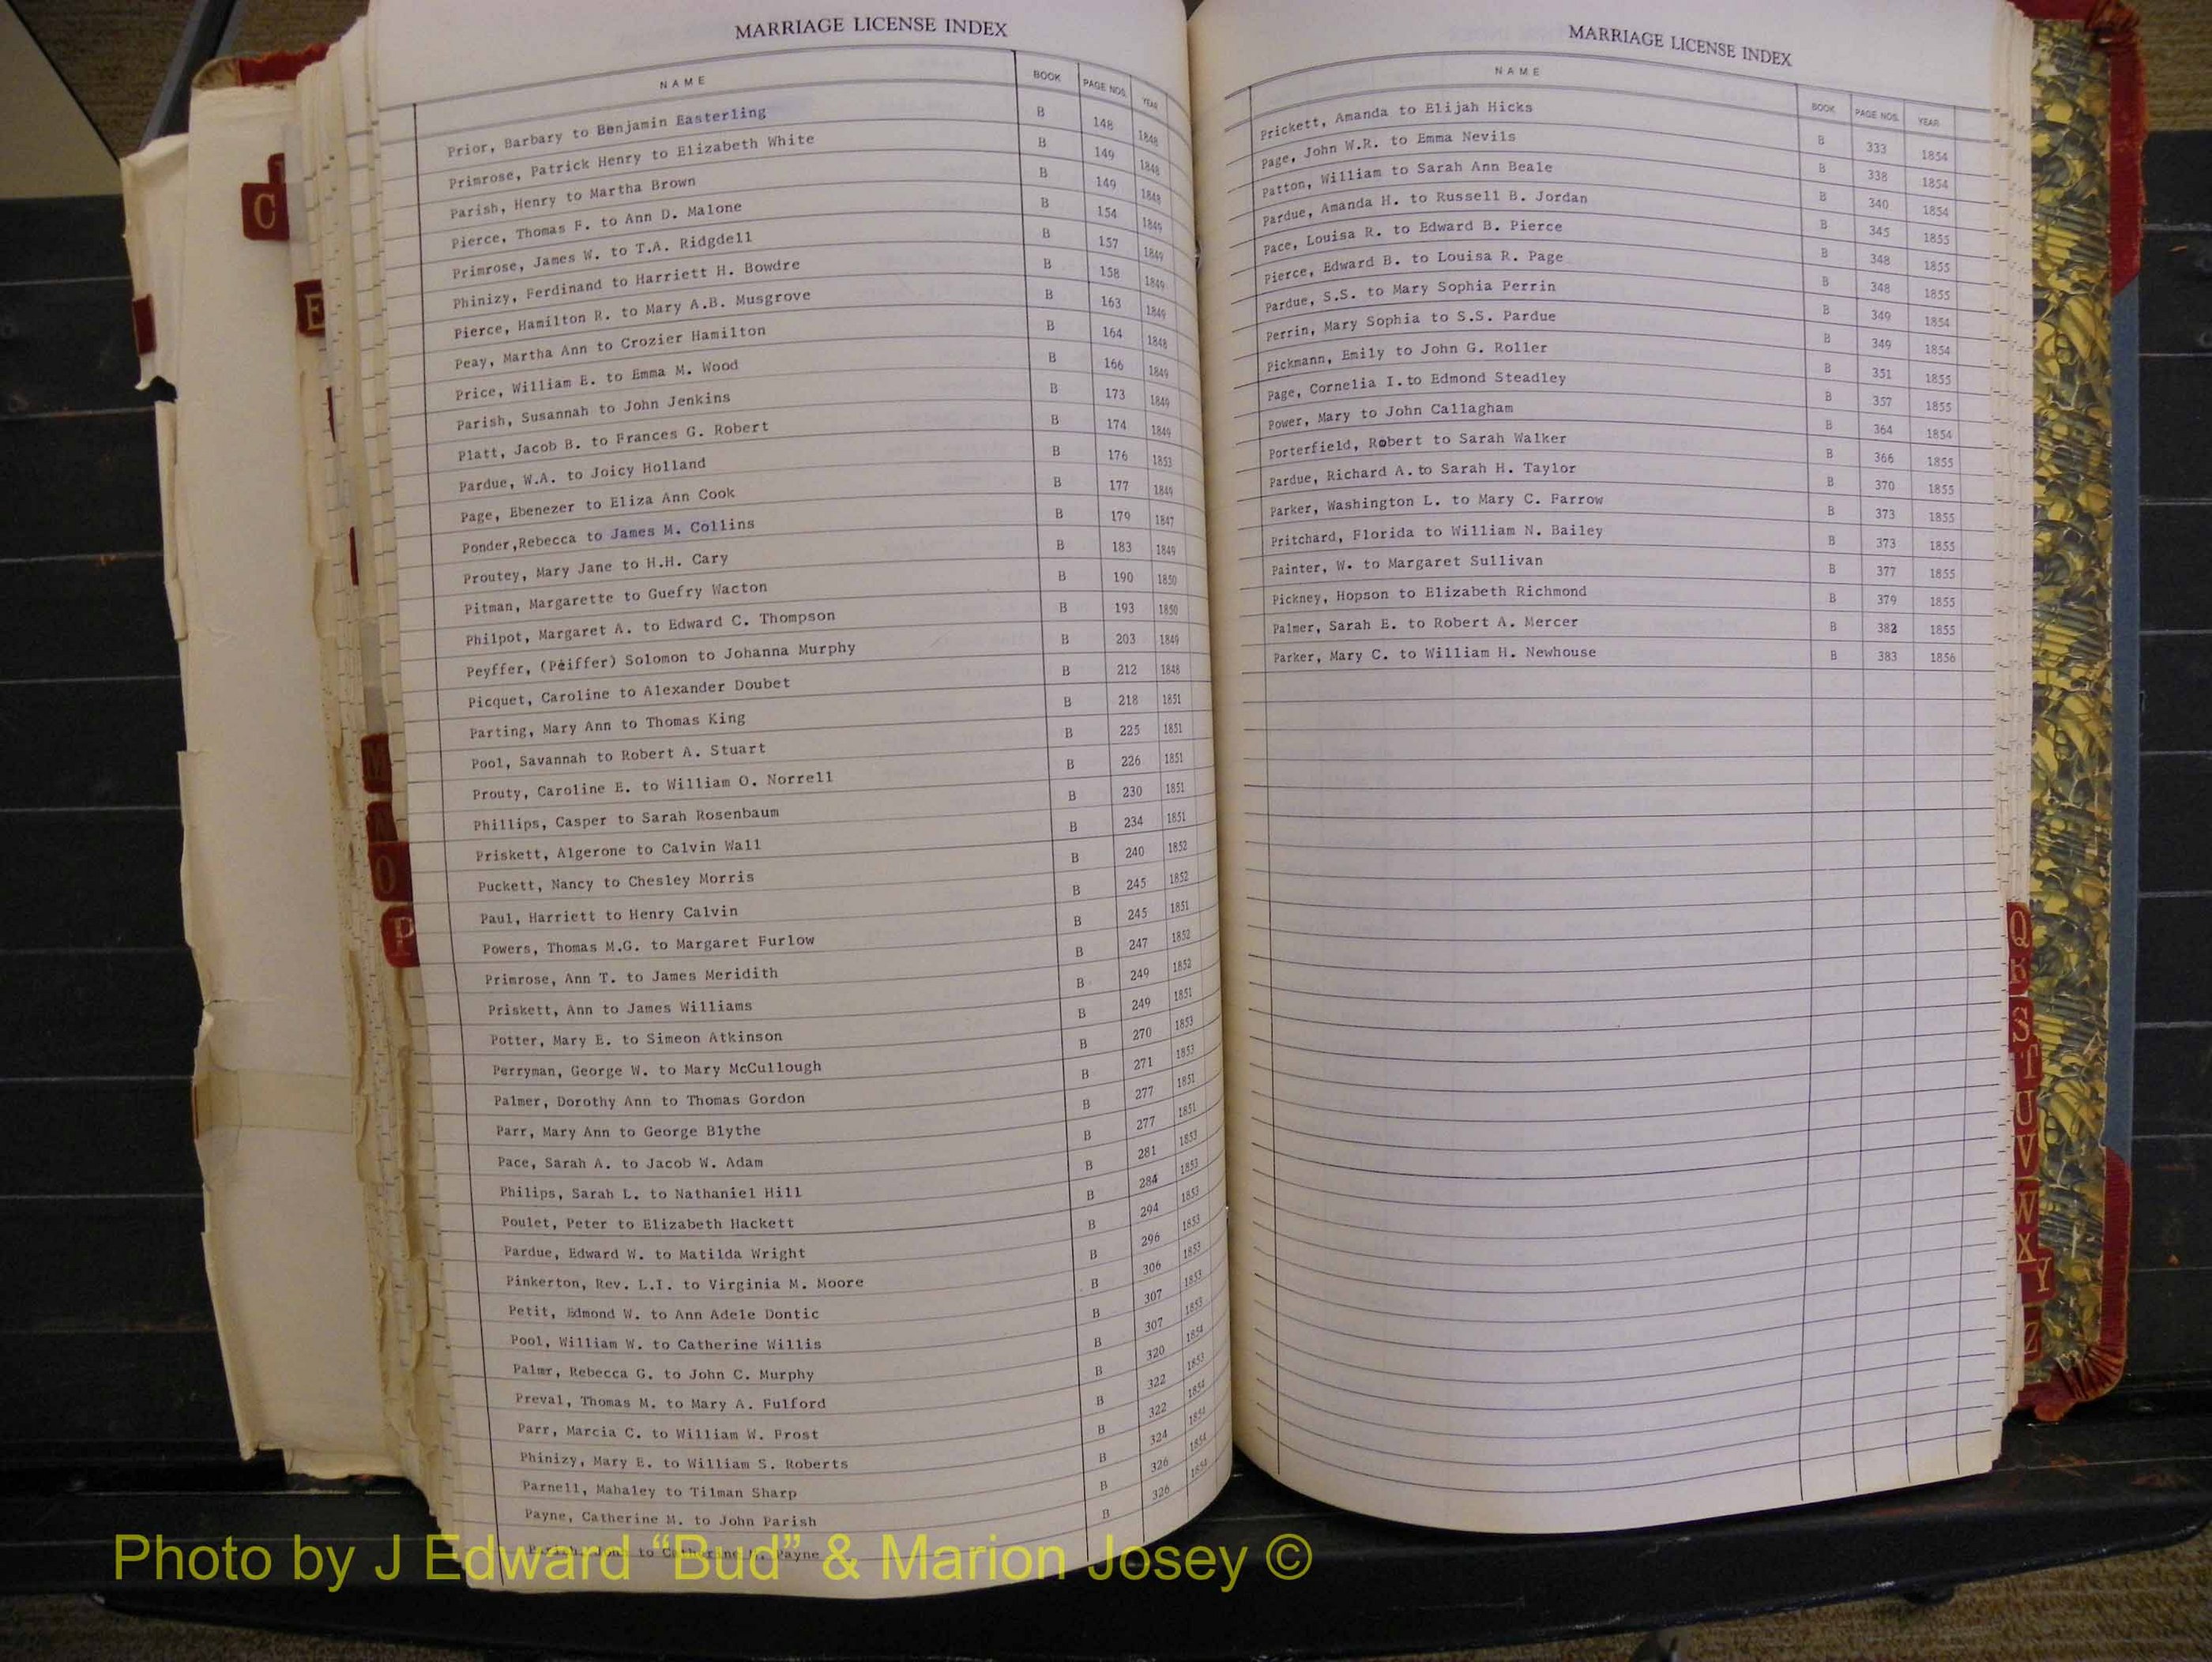 MARRIAGE LICENSE INDEX
NAME BOOK PAGE NOS. YEAR
Prior, Barbary to Benjamin Easterling B 148 1848
Primrose, Patrick Henry to Elizabeth White B 149 1848
Parish, Henry to Martha Brown B 149 1848
Pierce, Thomas F. to Ann D. Malone B 154 1849
Primrose, James W. to T.A. Ridgdell B 157 1849
Phinizy, Ferdinand to Harriett H. Bowdre B 158 1849
Pierce, Hamilton R. to Mary A.B. Musgrove B 163 1849
Peay, Martha Ann to Crozier Hamilton B 164 1848
Price, William E. to Emma M. Wood B 166 1849
Parish, Susannah to John Jenkins B 173 1849
Platt, Jacob B. to Frances G. Robert B 174 1849
Pardue, W.A. to Joicy Holland B 176 1853
Page, Ebenezer to Eliza Ann Cook B 177 1849
Ponder,Rebecca to James M. Collins B 179 1847
Proutey, Mary Jane to H.H. Cary B 183 1849
Pitman, Margarette to Guefry Wacton B 190 1850
Philpot, Margaret A. to Edward C. Thompson B 193 1850
Peyffer, (Peiffer) Solomon to Johanna Murphy B 203 1849
Picquet, Caroline to Alexander Doubet B 212 1848
Parting, Mary Ann to Thomas King B 218 1851
Pool, Savannah to Robert A. Stuart B 225 1851
Prouty, Caroline E. to William O. Norrell B 226 1851
Phillips, Casper to Sarah Rosenbaum B 230 1851
Priskett, Algerone to Calvin Wall B 234 1851
Puckett, Nancy to Chesley Morris B 240 1852
Paul, Harriett to Henry Calvin B 245 1852
Powers, Thomas M.G. to Margaret Furlow B 245 1851
Primrose, Ann T. to James Meridith B 247 1852
Priskett, Ann to James Williams B 249 1852
Potter, Mary E. to Simeon Atkinson B 249 1851
Perryman, George W. to Mary McCullough B 270 1853
Palmer, Dorothy Ann to Thomas Gordon B 271 1853
Parr, Mary Ann to George Blythe B 277 1851
Pace, Sarah A. to Jacob W. Adam B 277 1851
Philips, Sarah L. to Nathaniel Hill B 281 1853
Poulet, Peter to Elizabeth Hackett B 284 1853
Pardue, Edward W. to Matilda Wright B 294 1853
Pinkerton, Rev. L.I. to Virginia M. Moore B 296 1853
Petit, Edmond W. to Ann Adele Dontic B 306 1853
Pool, William W. to Catherine Willis B 307 1853
Palmr, Rebecca G. to John C. Murphy B 307 1853
Preval, Thomas M. to Mary A. Fulford B 320 1854
Parr, Marcia C. to William W. Frost B 322 1853
Phinizy, Mary E. to William S. Roberts B 322 1854
Parnell, Mahaley to Tilman Sharp B 324 1854
Payne, Catherine M. to John Parish B 326 1854
Parish, John to Catherine M. Payne B 326 1854
MARRIAGE LICENSE INDEX
NAME BOOK PAGE NOS. YEAR
Prickett, Amanda to Elijah Hicks B 333 1854
Page, John W.R. to Emma Nevils B 338 1854
Patton, William to Sarah Ann Beale B 340 1854
Pardue, Amanda H. to Russell B. Jordan B 345 1855
Pace, Louisa R. to Edward B. Pierce B 348 1855
Pierce, Edward B. to Louisa R. Page B 348 1855
Pardue, S.S. to Mary Sophia Perrin B 349 1854
Perrin, Mary Sophia to S.S. Pardue B 349 1854
Pickmann, Emily to John G. Roller B 351 1855
Page, Cornelia I. to Edmond Steadley B 357 1855
Power, Mary to John Callagham B 364 1854
Porterfield, Robert to Sarah Walker B 366 1855
Pardue, Richard A. to Sarah H. Taylor B 370 1855
Parker, Washington L. to Mary C. Farrow B 373 1855
Pritchard, Florida to William N. Bailey B 373 1855
Painter, W. to Margaret Sullivan B 377 1855
Pickney, Hopson to Elizabeth Richmond B 379 1855
Palmer, Sarah E. to Robert A. Mercer B 382 1855
Parker, Mary C. to William H. Newhouse B 383 1856
C
E
M
N
O
P
Q
R
S
T
U
V
W
X
Y
Z
Photo by J Edward “Bud” & Marion Josey ©